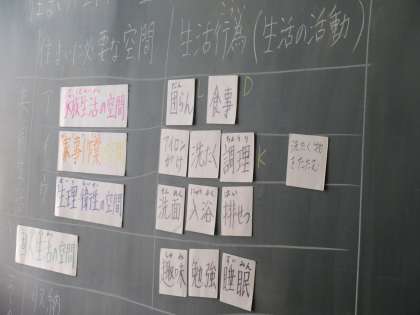 住まいに必要な空間
生活行為(生活の活動)
家族生活の空間
団らん
食事
D
家事作業
アイロンがけ
洗たく
調理
K
洗たく物をたたむ
生理衛生の空間
洗面
入浴
排せつ
個人生活の空間
趣味
勉強
睡眠
収納